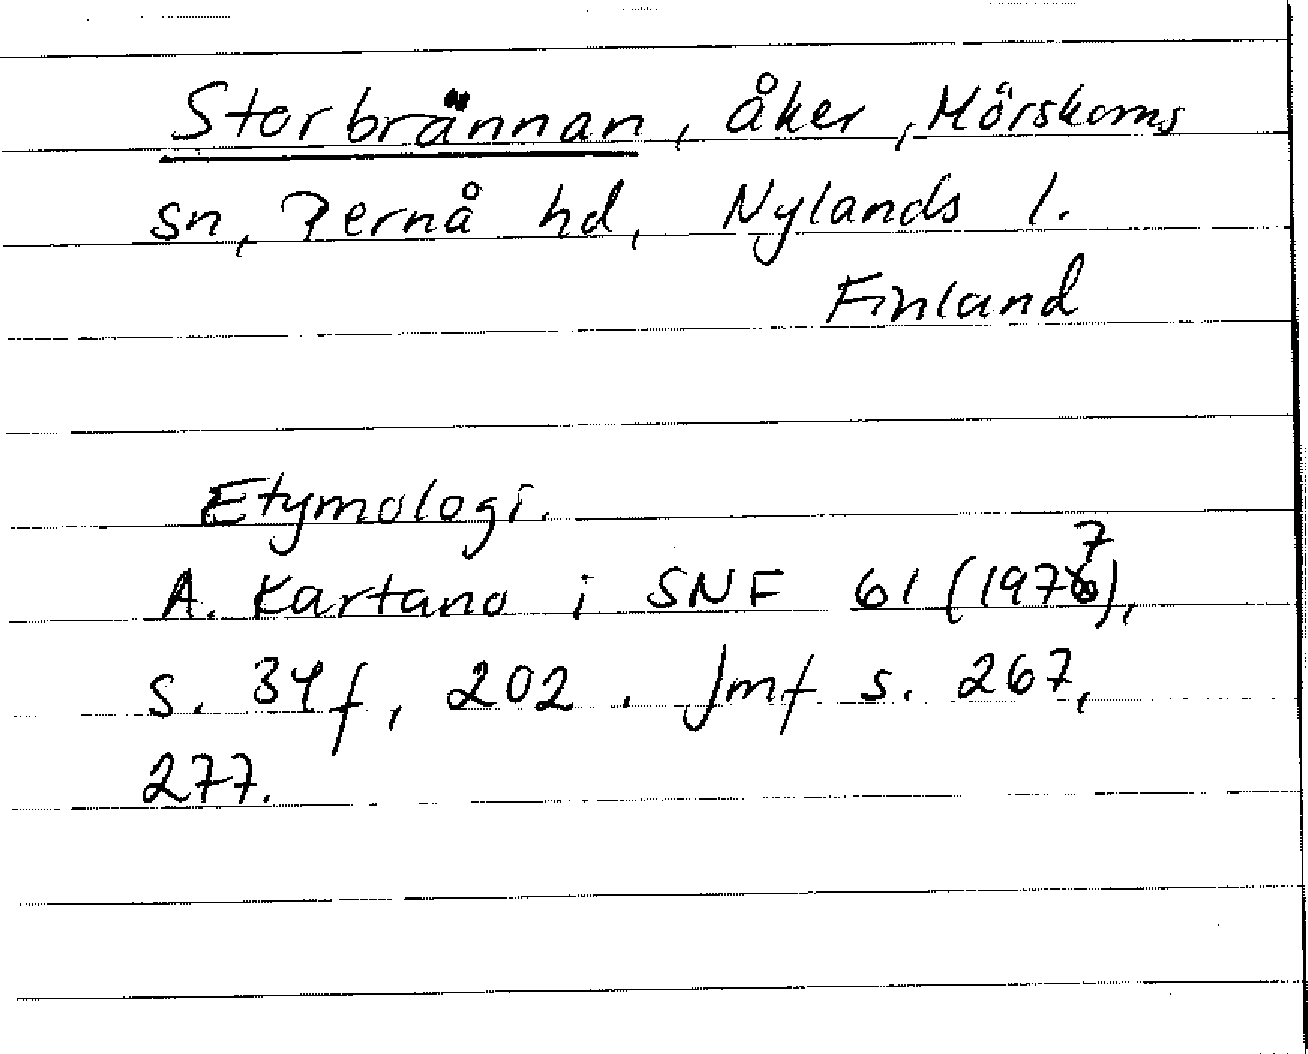 Storbrännan, åker, Mörskoms
sn, Pernå hd, Nylands l.
Finland
Etymologi.
A. Kartano i SNF 61 (1977),
s. 34f, 202. Jmf s. 267,
277.